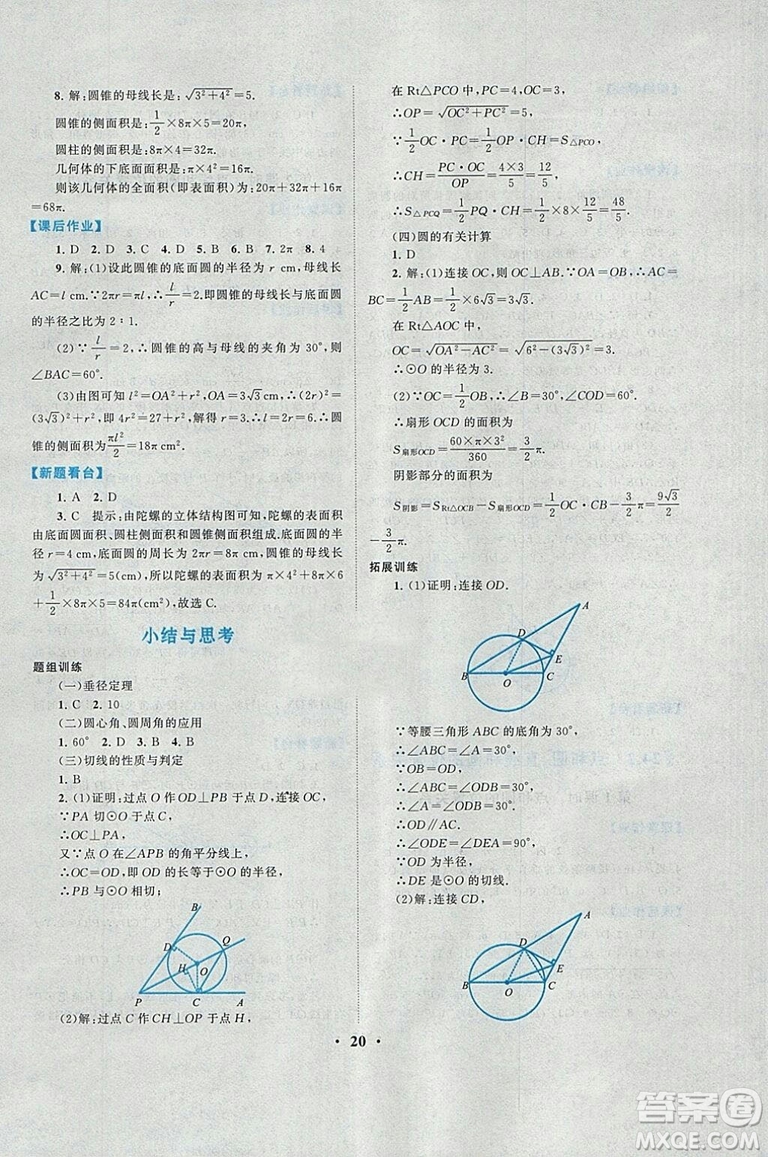 8. 解:圆锥的母线长是:√(3²+4²)=5.
圆锥的侧面积是:1/2×8π×5=20π,
圆柱的侧面积是:8π×4=32π.
几何体的下底面面积是:π×4²=16π.
则该几何体的全面积(即表面积)是:20π+32π+16π
=68π.
【课后作业】
1. D 2. D 3. C 4. A 5. B 6. B 7. 2π 8. 4
9. 解:(1)设此圆锥的底面圆的半径为 r cm,母线长
AC=l cm.∵2πr=πl,∴l/r=2.即圆锥的母线长与底面圆
的半径之比为 2∶1.
(2)∵l/r=2,∴圆锥的高与母线的夹角为 30°,则
∠BAC=60°.
(3)由图可知 l²=OA²+r²,OA=3√3 cm.∴(2r)²=
(3√3)²+r²,即 4r²=27+r²,解得 r=3.∴l=2r=6.∴圆
锥的侧面积为πl²/2=18π cm².
【新题看台】
1. A 2. D
3. C 提示:由陀螺的立体结构图可知,陀螺的表面积
由底面圆面积、圆柱侧面积和圆锥侧面积组成.底面圆的半
径 r=4 cm,底面圆的周长为 2πr=8π cm,圆锥的母线长为
√(3²+4²)=5(cm),所以陀螺的表面积为 π×4²+8π×6
+1/2×8π×5=84π(cm²),故选 C.
小结与思考
题组训练
(一)垂径定理
1. C 2. 10
(二)圆心角、圆周角的应用
1. 60° 2. D 3. B 4. B
(三)切线的性质与判定
1. B
2. (1)证明:过点 O 作 OD⊥PB 于点 D,连接 OC.
∵PA 切⊙O 于点 C,
∴OC⊥PA.
又∵点 O 在∠APB 的角平分线上,
∴OC=OD,即 OD 的长等于⊙O 的半径,
∴PB 与⊙O 相切;
B
D
Q
H
O
P
C
A
(2)解:过点 C 作 CH⊥OP 于点 H,
在 Rt△PCO 中,PC=4,OC=3,
∴OP=√(OC²+PC²)=5,
∵1/2OC·PC=1/2OP·CH=S△PCO,
∴CH=PC·OC/OP=4×3/5=12/5,
∴S△PCQ=1/2PQ·CH=1/2×8×12/5=48/5.
(四)圆的有关计算
1. D
2. 解:(1)连接 OC,则 OC⊥AB.∵OA=OB,∴AC=
BC=1/2AB=1/2×6√3=3√3.
在 Rt△AOC 中,
OC=√(OA²−AC²)=√(6²−(3√3)²)=3.
∴⊙O 的半径为 3.
(2)∵OC=1/2OB,∴∠B=30°,∠COD=60°.
∴扇形 OCD 的面积为
S扇形OCD=60×π×3²/360=3/2π.
阴影部分的面积为
S阴影=SRt△OCB−S扇形OCD=1/2OC·CB−3/2π=9√3/2
−3/2π.
拓展训练
1. (1)证明:连接 OD.
A
D
E
B
O
C
∵等腰三角形 ABC 的底角为 30°,
∴∠ABC=∠A=30°.
∵OB=OD,
∴∠ABC=∠ODB=30°.
∴∠A=∠ODB=30°,
∴OD∥AC.
∴∠ODE=∠DEA=90°.
∵OD 为半径,
∴DE 是⊙O 的切线.
(2)解:连接 CD,
A
D
E
B
O
C
· 20 ·
答案卷
MXQE.COM